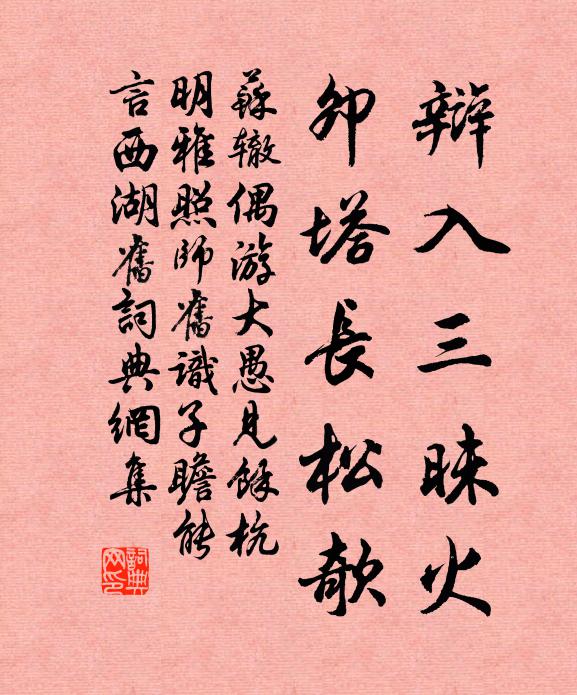 辯入三昧火
卵塔長松欹
蘇轍偶游大愚見餘杭
明雅照師舊識子瞻能
言西湖舊詞典網集
詞典网印